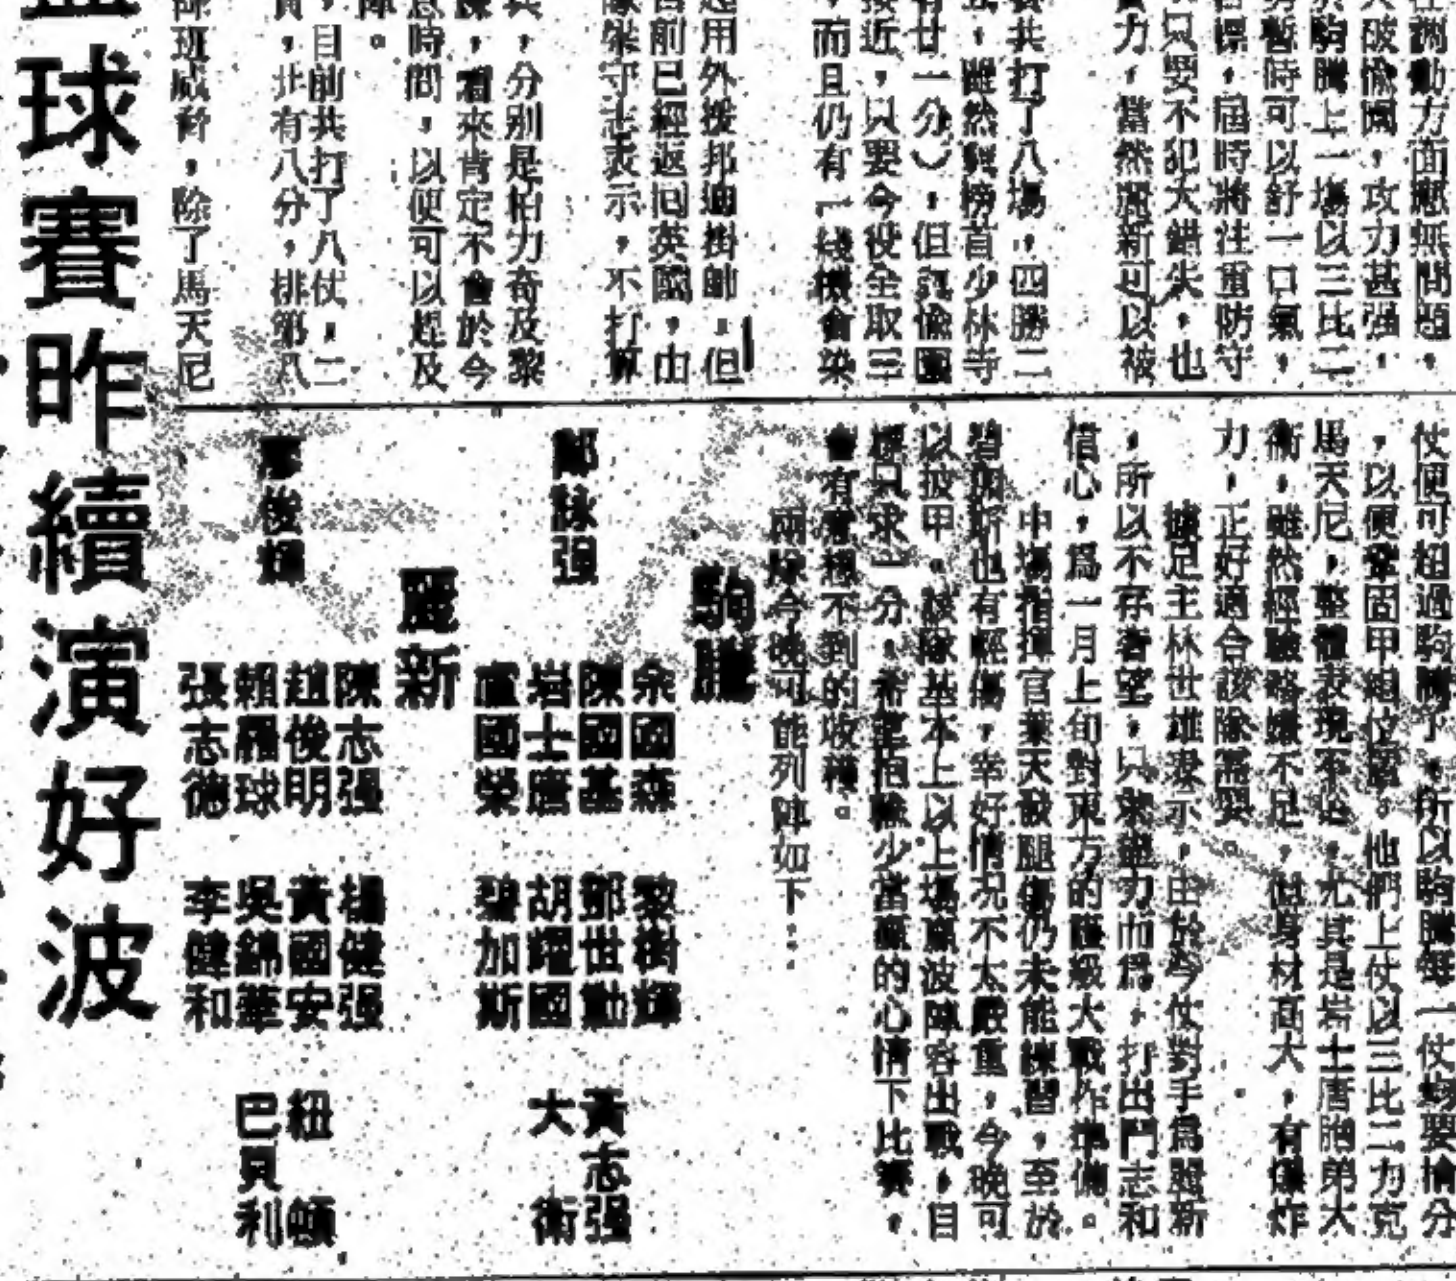 在調動方面應無問題,
大破愉園,攻力甚强,
駒騰上一場以三比二
暫時可以舒一口氣,
標,屆時將注重防守
只要不犯大錯失,也
力,當然麗新可以被
共打了八場,四勝二
,雖然與榜首少林寺
有廿一分),但與愉園
接近,以要今役全取三
,而且仍有一綫機會染
起用外援邦迪掛帥,但
目前已經返回英國,由
梁守志表示,不打算
兵,分别是柏力奇及黎
,看來肯定不會於今
息時間,以便可以趕及
陣。
,目前共打了八仗,二
負,共有八分,排第八
班威脅,除了馬天尼
仗便可超過駒騰了,所以駒騰每一仗均要搶分
,以便鞏固甲組位置。他們上仗以三比二力克
馬天尼,整體表現不俗,尤其是岩士唐胞弟大
衛,雖然經驗略嫌不足,但身材高大,有爆炸
力,正好適合該隊需要。
據足主林世雄表示,由於今仗對手爲麗新
,所以不存奢望,只求盡力而爲,打出鬥志和
信心,爲一月上旬對東方的護級大戰作準備。
中場指揮官葉天發腿傷仍未能練習,至於
碧加斯也有輕傷,幸好情况不太嚴重,今晚可
以披甲。該隊基本上以上場贏波陣容出戰,目
標只求一分,希望抱除少當贏的心情下比賽,
會有意想不到的收穫。
兩隊今晚可能列陣如下:
駒騰
鄭詠强
余國森 黎樹輝
陳國基 鄧世勤 黃志强
岩士唐 胡耀國 大衛
盧國榮 碧加斯
麗新
廖俊輝
陳志强 楊健强
趙俊明 黃國安 紐頓
賴羅球 吳錦華 巴貝利
張志德 李健和
球賽昨續演好波